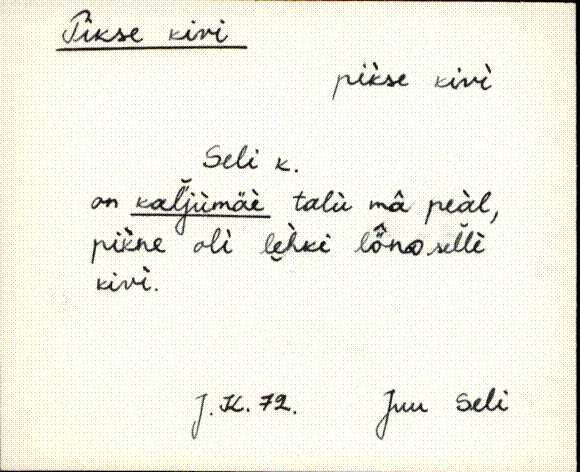 Pìkse kivì
pìkse kivì
Seli k.
on kaľjùmäè talù mâ peàl,
pìkne olì lèhki lô̈no sellè
kivì.
J. K. 72. Juu Seli